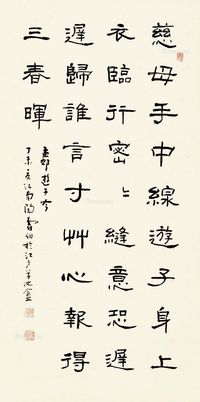 慈母手中線遊子身上
衣臨行密〻縫意恐遲
遲歸誰言寸艸心報得
三春暉
孟郊遊子吟
丁未夏江南